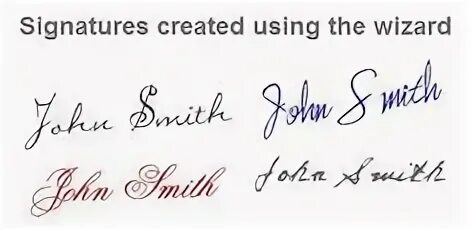 Signatures created using the wizard
John Smith
John Smith
John Smith
John Smith